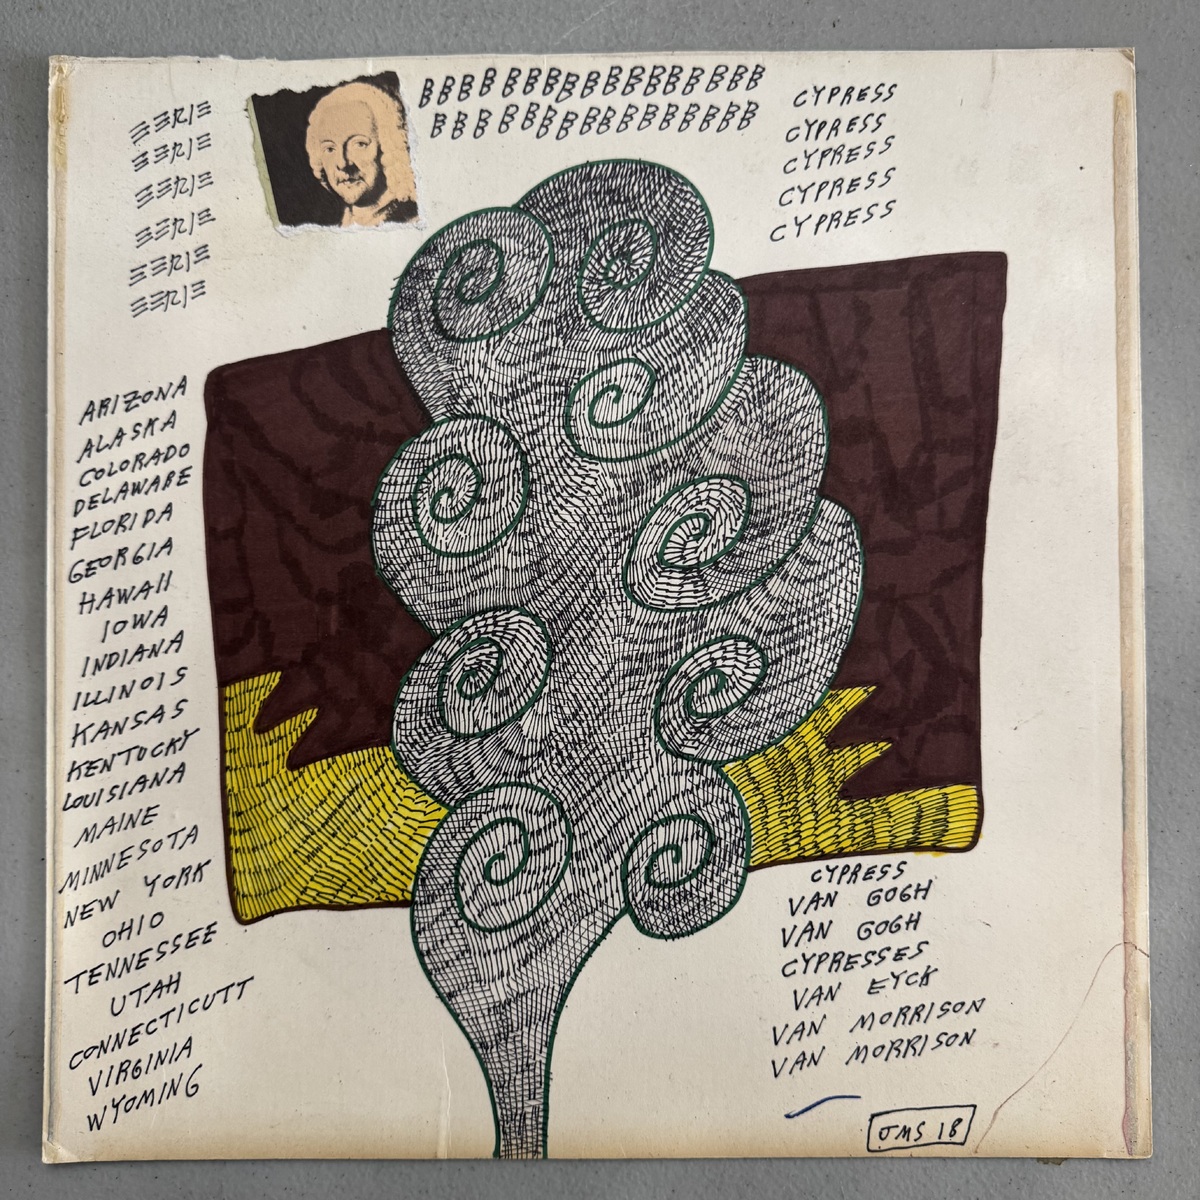 EERIE
EERIE
EERIE
EERIE
EERIE
EERIE
BBBBBBBBBBBBBBBBB
BBBBBBBBBBBBBBBB
CYPRESS
CYPRESS
CYPRESS
CYPRESS
CYPRESS
ARIZONA
ALASKA
COLORADO
DELAWARE
FLORIDA
GEORGIA
HAWAII
IOWA
INDIANA
ILLINOIS
KANSAS
KENTUCKY
LOUISIANA
MAINE
MINNESOTA
NEW YORK
OHIO
TENNESSEE
UTAH
CONNECTICUTT
VIRGINIA
WYOMING
CYPRESS
VAN GOGH
VAN GOGH
CYPRESSES
VAN EYCK
VAN MORRISON
VAN MORRISON
JMS 18